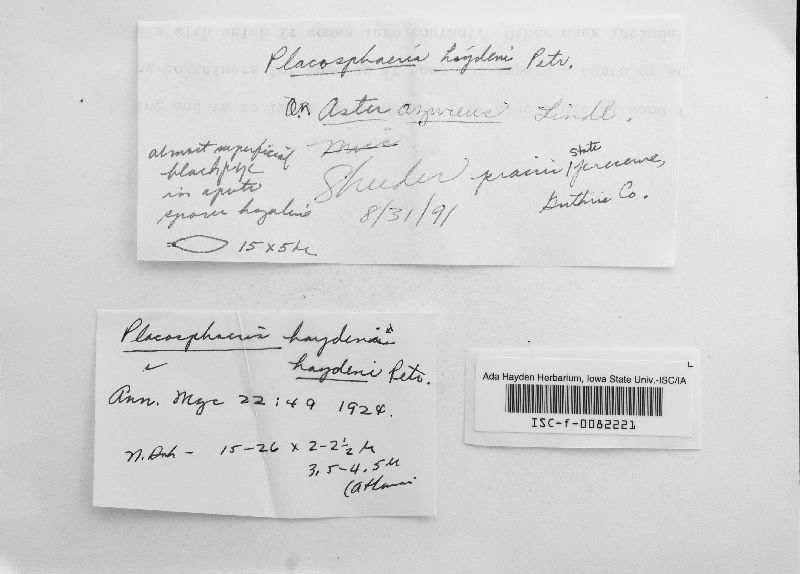 Placosphaeria haydeni Petr.
on Aster azureus Lindl.
almost superficial
black pyc
in spots
spores hyaline
15 x 5 µ
Sheeder prairie state preserve,
Guthrie Co.
8/31/91
Placosphaeria haydeni
haydeni Petr.
Ann. Myc 22:49 1924.
N. Dak - 15-26 x 2-2½ µ
3.5-4.5 µ
Ada Hayden Herbarium, Iowa State Univ.-ISC/IA
ISC-f-0082221